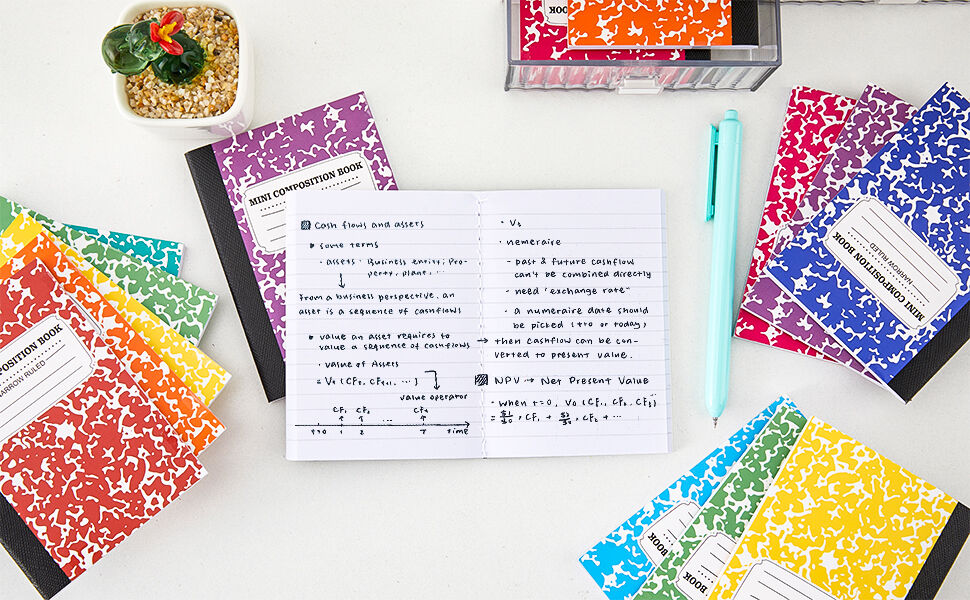 BOOK
MINI COMPOSITION BOOK
Cash flows and assets
some terms
assets: Business entity, Pro-
perty, plane, ...
From a business perspective, an
asset is a sequence of cashflows
value an asset requires to
value a sequence of cashflows
value of Assets
= V₀ (CFₜ, CFₜ₊₁, ...)
value operator
CF₁ CF₂ CFₜ
↑ ↑ ... ↑
t=0 1 2 T Time
Vₜ
nemeraire
- past & future cashflow
can't be combined directly
- need "exchange rate"
- a numeraire date should
be picked (t=0 or today)
→ then cashflow can be con-
verted to present value.
NPV → Net Present Value
When t=0, V₀ (CF₁, CF₂, CF₃)
CF₁ + CF₂ + ...
COMPOSITION BOOK
NARROW RULED
MINI COMPOSITION BOOK
NARROW RULED
BOOK
BOOK